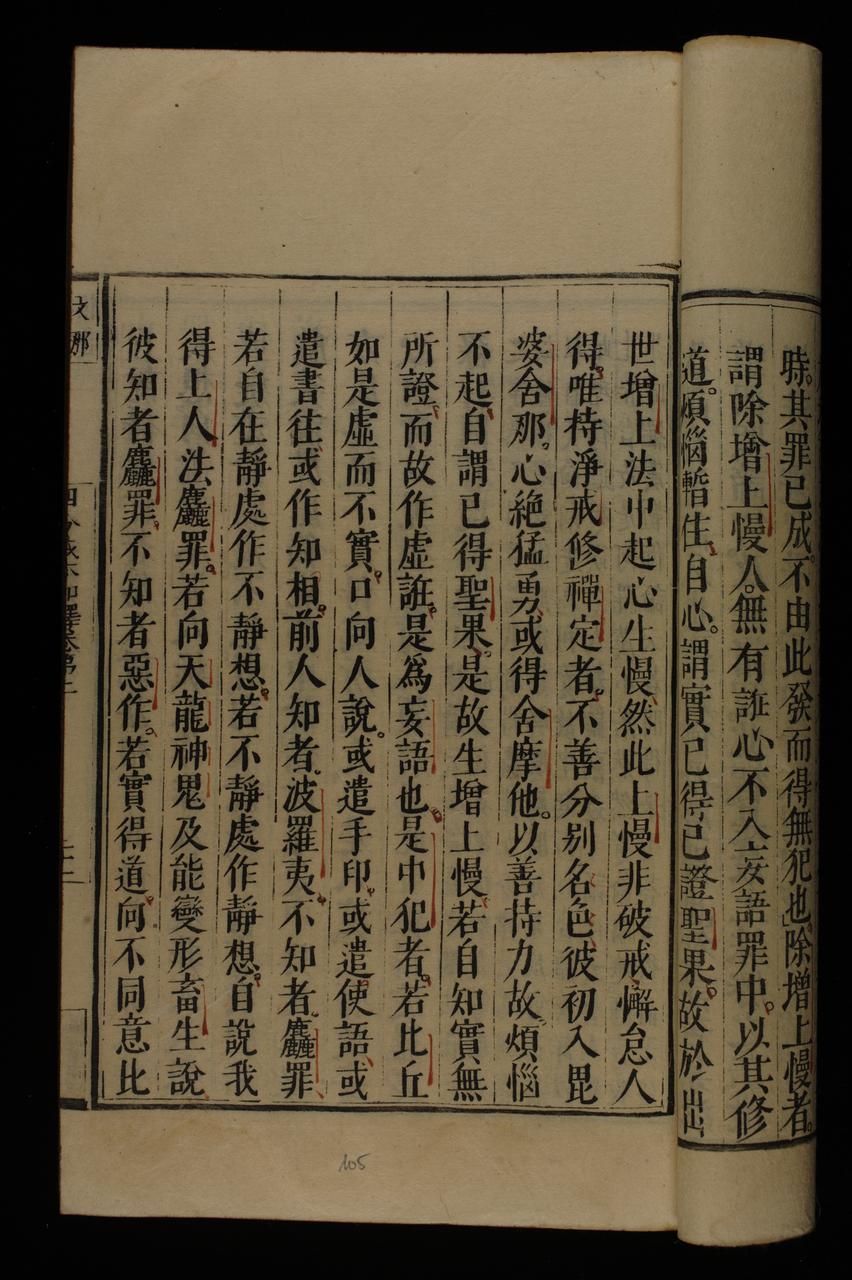 時。其罪已成。不由此發而得無犯也。除增上慢者。
謂除增上慢人。無有誑心不入妄語罪中。以其修
道。煩惱暫住。自心。謂實已得已證聖果。故於出
世增上法中起心生慢。然此上慢非破戒懈怠人
得。唯持淨戒修禪定者。不善分別名色。彼初入毘
婆舍那。心絶猛勇。或得舍摩他。以善持力故。煩惱
不起。自謂已得聖果。是故生增上慢。若自知實無
所證。而故作虛誑。是為妄語也。是中犯者。若比丘
如是虛而不實。口向人說。或遣手印。或遣使語。或
遣書往。或作知相。前人知者。波羅夷。不知者。麤罪。
若自在靜處作不靜想。若不靜處作靜想。自說我
得上人法。麤罪。若向天龍神鬼及能變形畜生說。
彼知者麤罪。不知者惡作。若實得道。向不同意比